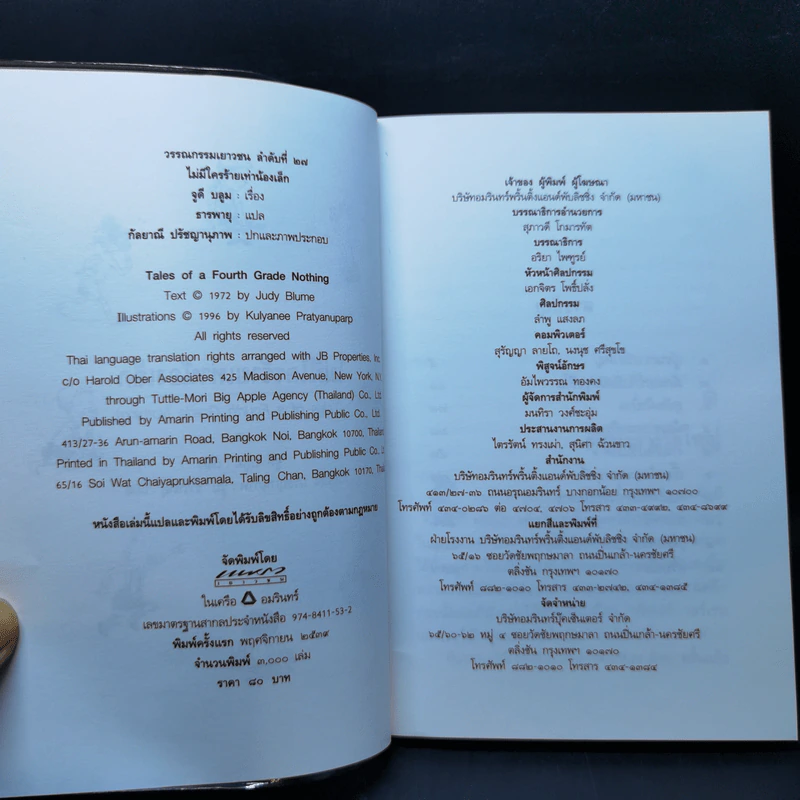 วรรณกรรมเยาวชน ลำดับที่ ๒๗
ไม่มีใครร้ายเท่าน้องเล็ก
จูดี บลูม : เรื่อง
ธารพายุ : แปล
กัลยาณี ปรัชญานุภาพ : ปกและภาพประกอบ
Tales of a Fourth Grade Nothing
Text © 1972 by Judy Blume
Illustrations © 1996 by Kulyanee Pratyanuparp
All rights reserved
Thai language translation rights arranged with JB Properties, Inc.
c/o Harold Ober Associates 425 Madison Avenue, New York, N.Y.
through Tuttle-Mori Big Apple Agency (Thailand) Co., Ltd.
Published by Amarin Printing and Publishing Public Co., Ltd.
413/27-36 Arun-amarin Road, Bangkok Noi, Bangkok 10700, Thailand
Printed in Thailand by Amarin Printing and Publishing Public Co.,
65/16 Soi Wat Chaiyapruksamala, Taling Chan, Bangkok 10170, Thailand
หนังสือเล่มนี้แปลและพิมพ์โดยได้รับลิขสิทธิ์อย่างถูกต้องตามกฎหมาย
จัดพิมพ์โดย
แพรว
เยาวชน
ในเครือ อมรินทร์
เลขมาตรฐานสากลประจำหนังสือ 974-8411-53-2
พิมพ์ครั้งแรก พฤศจิกายน ๒๕๓๙
จำนวนพิมพ์ ๓,๐๐๐ เล่ม
ราคา ๘๐ บาท
เจ้าของ ผู้พิมพ์ ผู้โฆษณา
บริษัทอมรินทร์พริ้นติ้งแอนด์พับลิชชิ่ง จำกัด (มหาชน)
บรรณาธิการอำนวยการ
สุภาวดี โกมารทัต
บรรณาธิการ
อริยา ไพฑูรย์
หัวหน้าศิลปกรรม
เอกจิตร โพธิ์ปลั่ง
ศิลปกรรม
ลำพู แสงลภ
คอมพิวเตอร์
สุรัญญา ลายโถ, นงนุช ศรีสุขโข
พิสูจน์อักษร
อัมไพวรรณ ทองคง
ผู้จัดการสำนักพิมพ์
มนทิรา วงศ์ชะอุ่ม
ประสานงานการผลิต
ไตรรัตน์ ทรงเผ่า, สุนิศา ฉ้วนขาว
สำนักงาน
บริษัทอมรินทร์พริ้นติ้งแอนด์พับลิชชิ่ง จำกัด (มหาชน)
๔๑๓/๒๗-๓๖ ถนนอรุณอมรินทร์ บางกอกน้อย กรุงเทพฯ ๑๐๗๐๐
โทรศัพท์ ๔๓๔-๐๒๘๖ ต่อ ๔๗๐๔, ๔๗๐๖ โทรสาร ๔๓๓-๔๙๙๒, ๔๓๔-๘๖๙๙
แยกสีและพิมพ์ที่
ฝ่ายโรงงาน บริษัทอมรินทร์พริ้นติ้งแอนด์พับลิชชิ่ง จำกัด (มหาชน)
๖๕/๑๖ ซอยวัดชัยพฤกษมาลา ถนนปิ่นเกล้า-นครชัยศรี
ตลิ่งชัน กรุงเทพฯ ๑๐๑๗๐
โทรศัพท์ ๘๘๒-๑๐๑๐ โทรสาร ๔๓๓-๒๗๔๒, ๔๓๔-๑๓๘๕
จัดจำหน่าย
บริษัทอมรินทร์บุ๊คเซ็นเตอร์ จำกัด
๖๕/๖๐-๖๒ หมู่ ๔ ซอยวัดชัยพฤกษมาลา ถนนปิ่นเกล้า-นครชัยศรี
ตลิ่งชัน กรุงเทพฯ ๑๐๑๗๐
โทรศัพท์ ๘๘๒-๑๐๑๐ โทรสาร ๔๓๔-๑๓๘๔